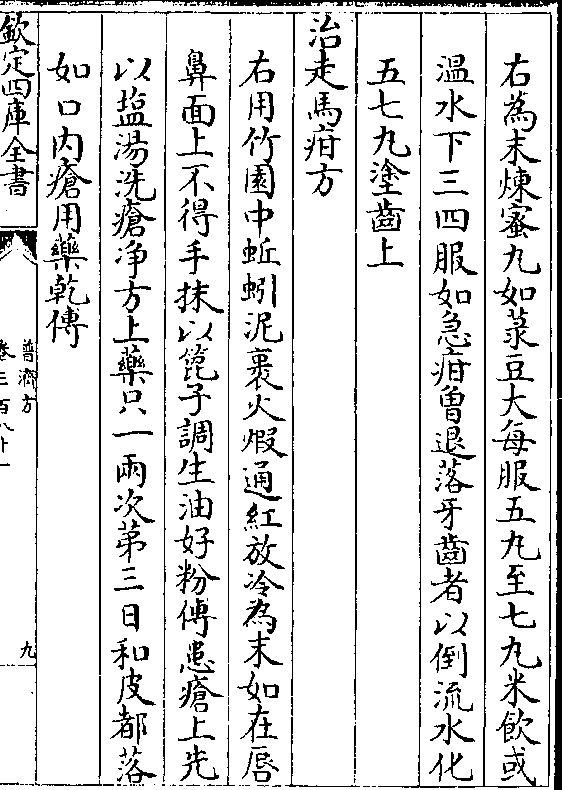 右為末煉蜜丸如菉豆大每服五九至七九米飲或
溫水下三四服如急疳曽退落牙齒者以倒流水化
五七九塗齒上
治走馬疳方
右用竹園中蚯蚓泥裹火煆通紅放冷為末如在唇
鼻面上不得手抹以篦子調生油好粉傅患瘡上先
以塩湯洗瘡净方上藥只一兩次第三日和皮都落
如口内瘡用藥乾傅
欽定四庫全書
普濟方
卷三百八十一
九